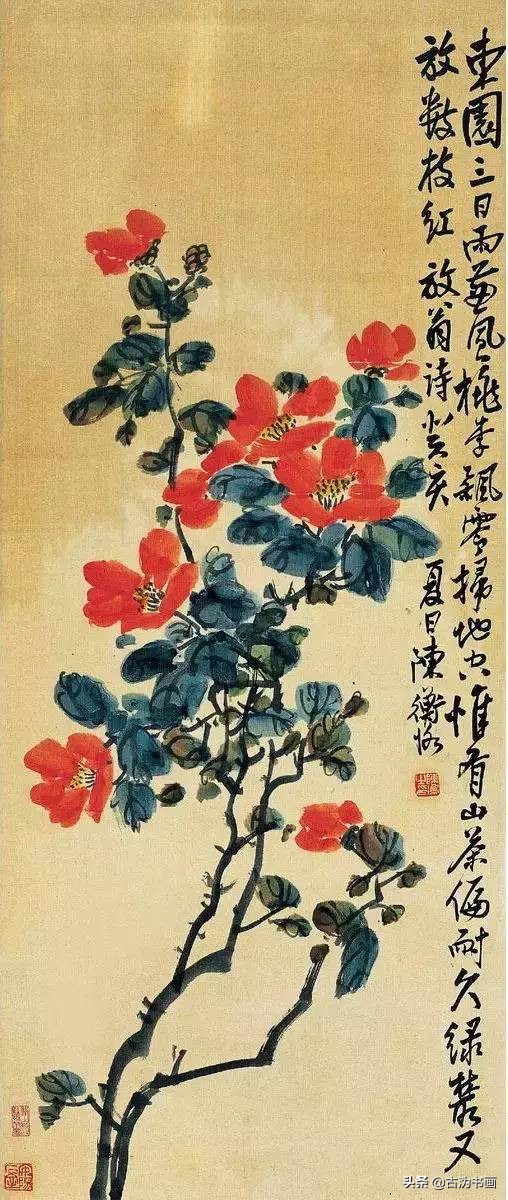 東園三日雨兼風桃李飄零掃地空惟有山茶偏耐久綠叢又
放數枝紅 放翁詩癸亥夏日陳衡恪
头条 @古沥书画